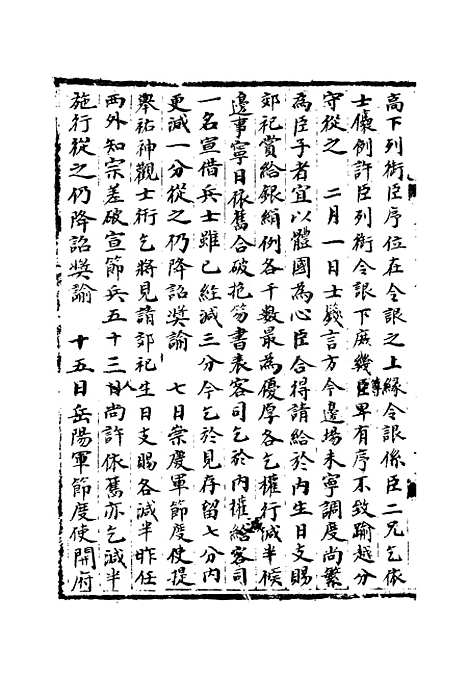 高下列銜臣序位在令詪之上緣令詪係臣二兄乞依
士儴例許臣列銜令詪下庶幾尊臣卑有序不致踰越分
守從之　二月一日士㒟言方今邊場未寧調度尚繁
為臣子者宜以體國為心臣合得請給於內生日支賜
郊祀賞給銀絹例各千數最為優厚各乞權行減半候
邊事寧日依舊合破抱笏書表客司乞於內權減給客司
一名宣借兵士雖已經減三分今乞於見存留七分內
更減一分從之仍降詔奬諭　七日崇慶軍節度使提
舉祐神觀士術乞將見請郊祀生日支賜各減半昨任
西外知宗差破宣節兵五十三人日尚許依舊亦乞減半
施行從之仍降詔奬諭　十五日岳陽軍節度使開府